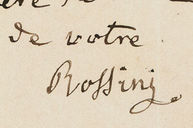 de votre
Rossini.